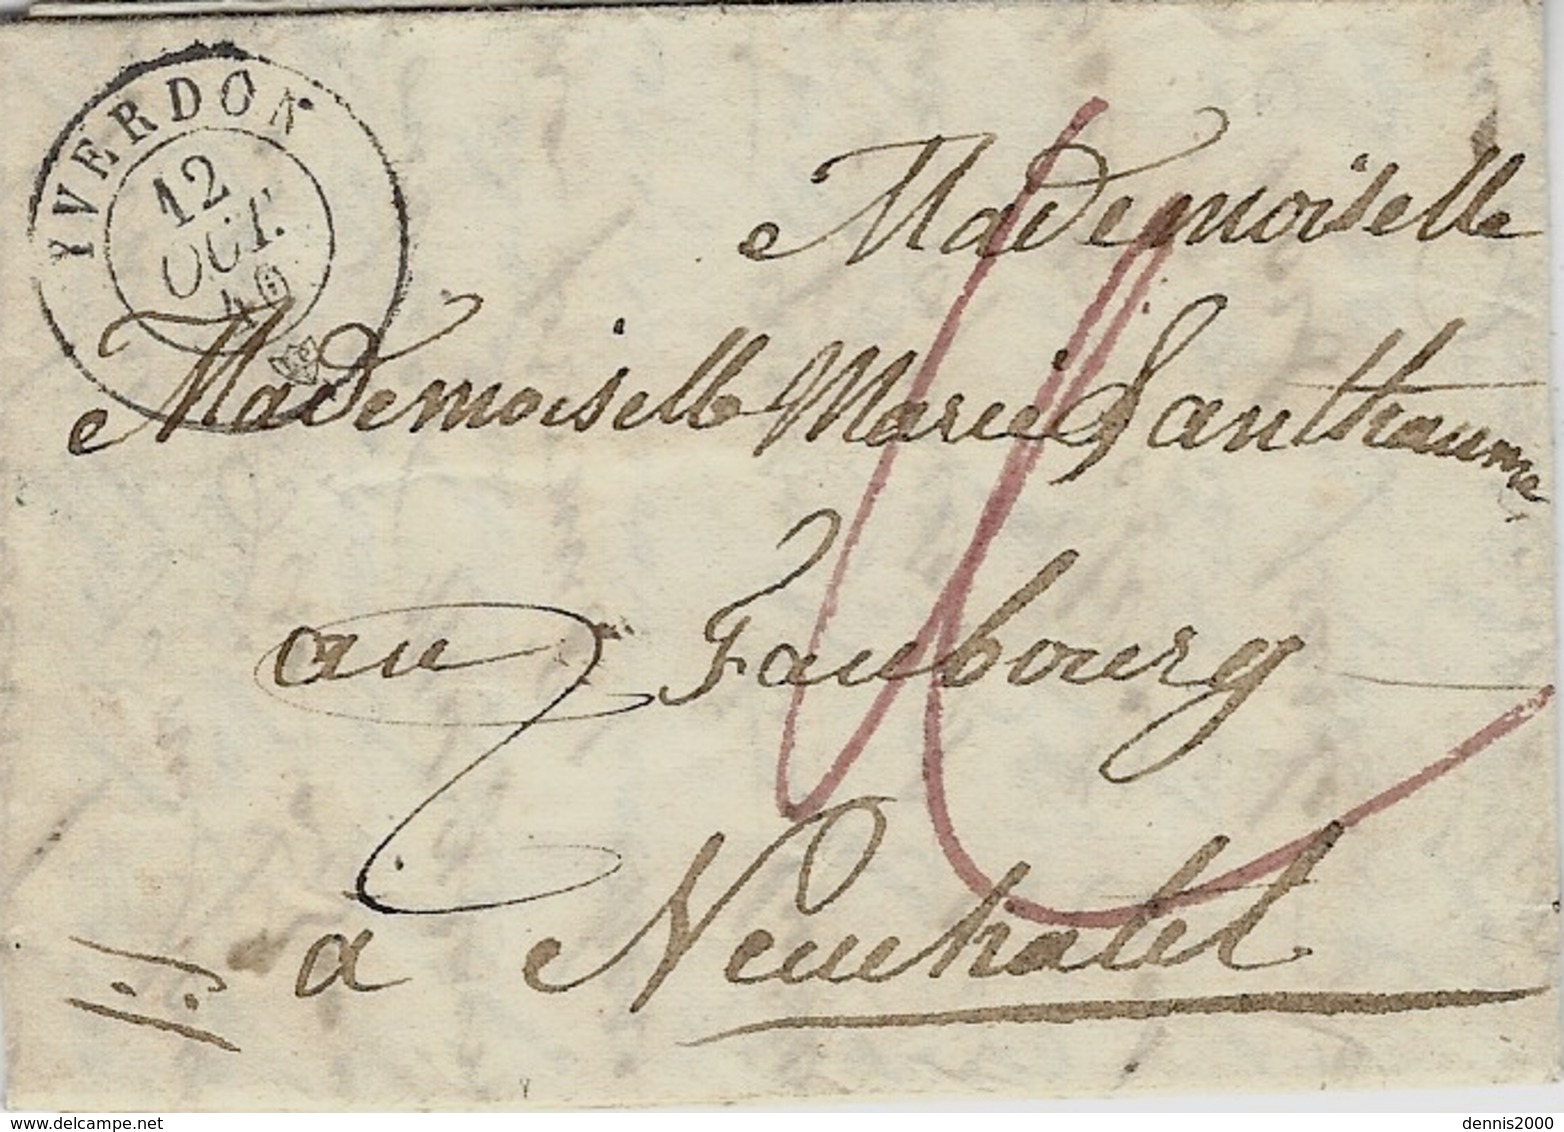 YVERDON
12
OCT.
46
Mademoiselle
Mademoiselle Marie Janthaume
au Faubourg
a Neuchatel
dennis2000